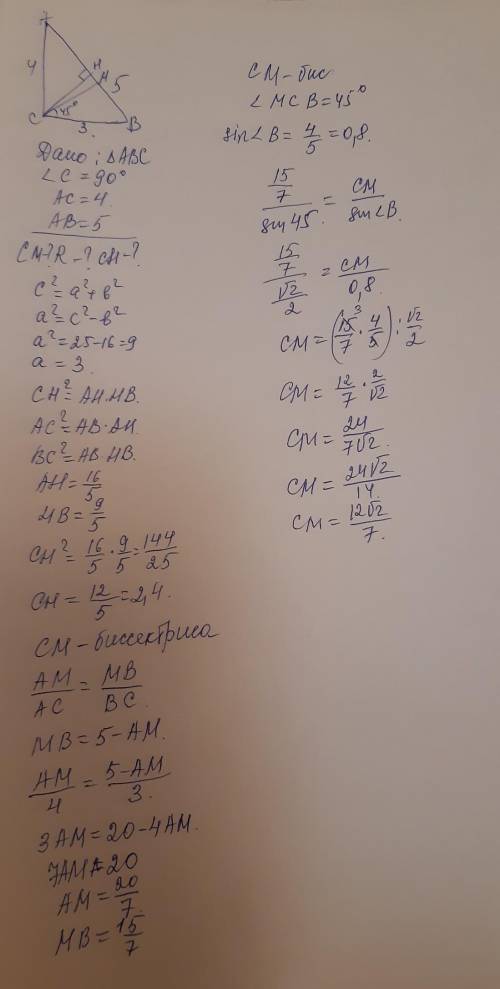 A
4
H
M
5
C
45°
3.
B
Дано: ΔABC
∠C = 90°
AC = 4
AB = 5
CM-? R-? CH-?
c² = a² + b²
a² = c² - b²
a² = 25 - 16 = 9
a = 3.
CH² = AH·HB.
AC² = AB·AH.
BC² = AB·HB.
AH = 16/5
HB = 9/5
CH² = 16/5 · 9/5 = 144/25
CH = 12/5 = 2,4.
CM - биссектриса
AM/AC = MB/BC.
MB = 5 - AM.
AM/4 = 5-AM/3.
3AM = 20 - 4AM.
7AM = 20
AM = 20/7.
MB = 15/7
CM - бис.
∠MCB = 45°
sin∠B = 4/5 = 0,8.
15/7 / sin45 = CM / sin∠B.
15/7 / √2/2 = CM / 0,8.
CM = (15/7 · 4/5) : √2/2
3
CM = 12/7 · 2/√2
CM = 24/7√2.
CM = 24√2/14.
CM = 12√2/7.